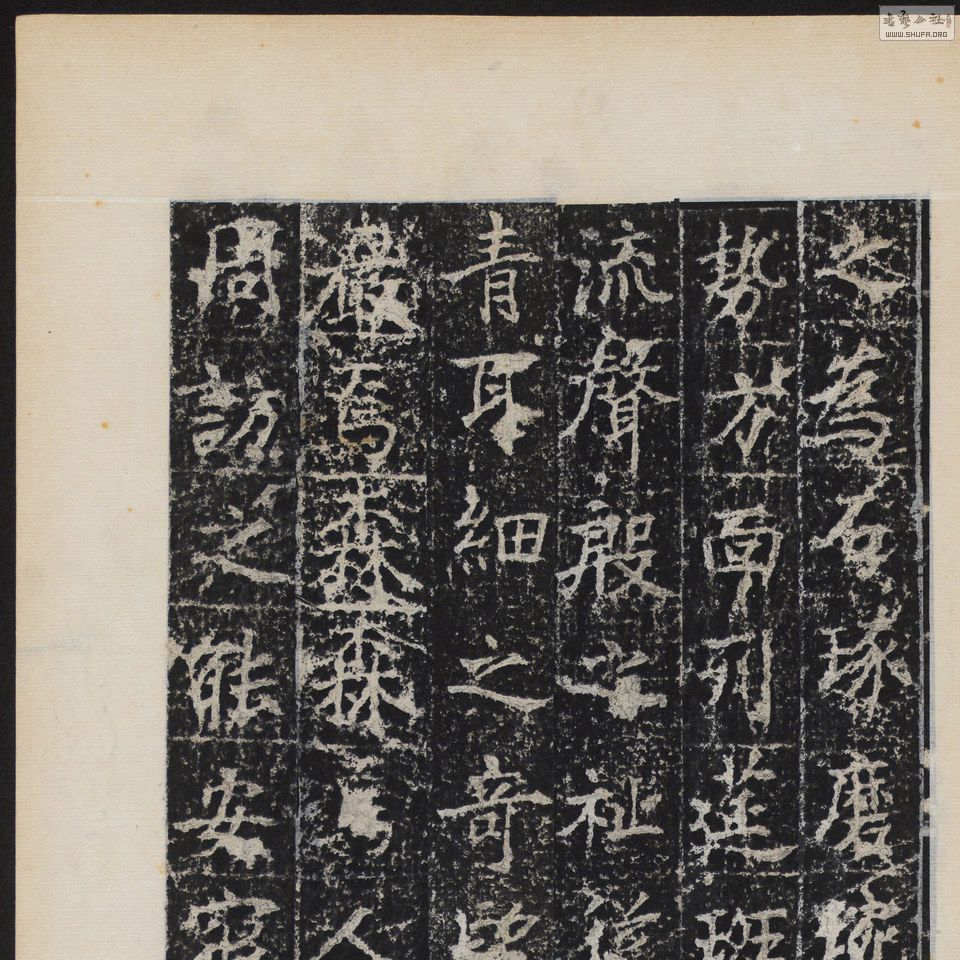 書藝公社
WWW.SHUFA.ORG
之為石琢磨
勢面列莚班
流聲殷之祉
青耳細之奇
焉森森焉人
周訪之能安